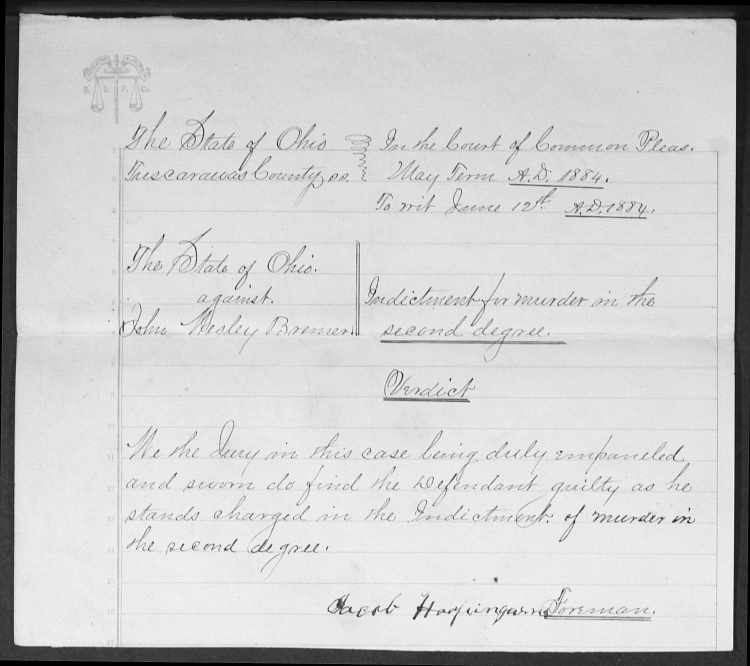 The State of Ohio
Tuscarawas County, ss.
In the Court of Common Pleas.
May Term A.D. 1884.
To wit June 12th A.D. 1884.
The State of Ohio.
against.
John Wesley Bremer.
Indictment for murder in the
second degree.
Verdict
We the Jury in this case being duly empaneled
and sworn do find the Defendant guilty as he
stands charged in the Indictment. of murder in
the second degree.
Jacob Foreman.